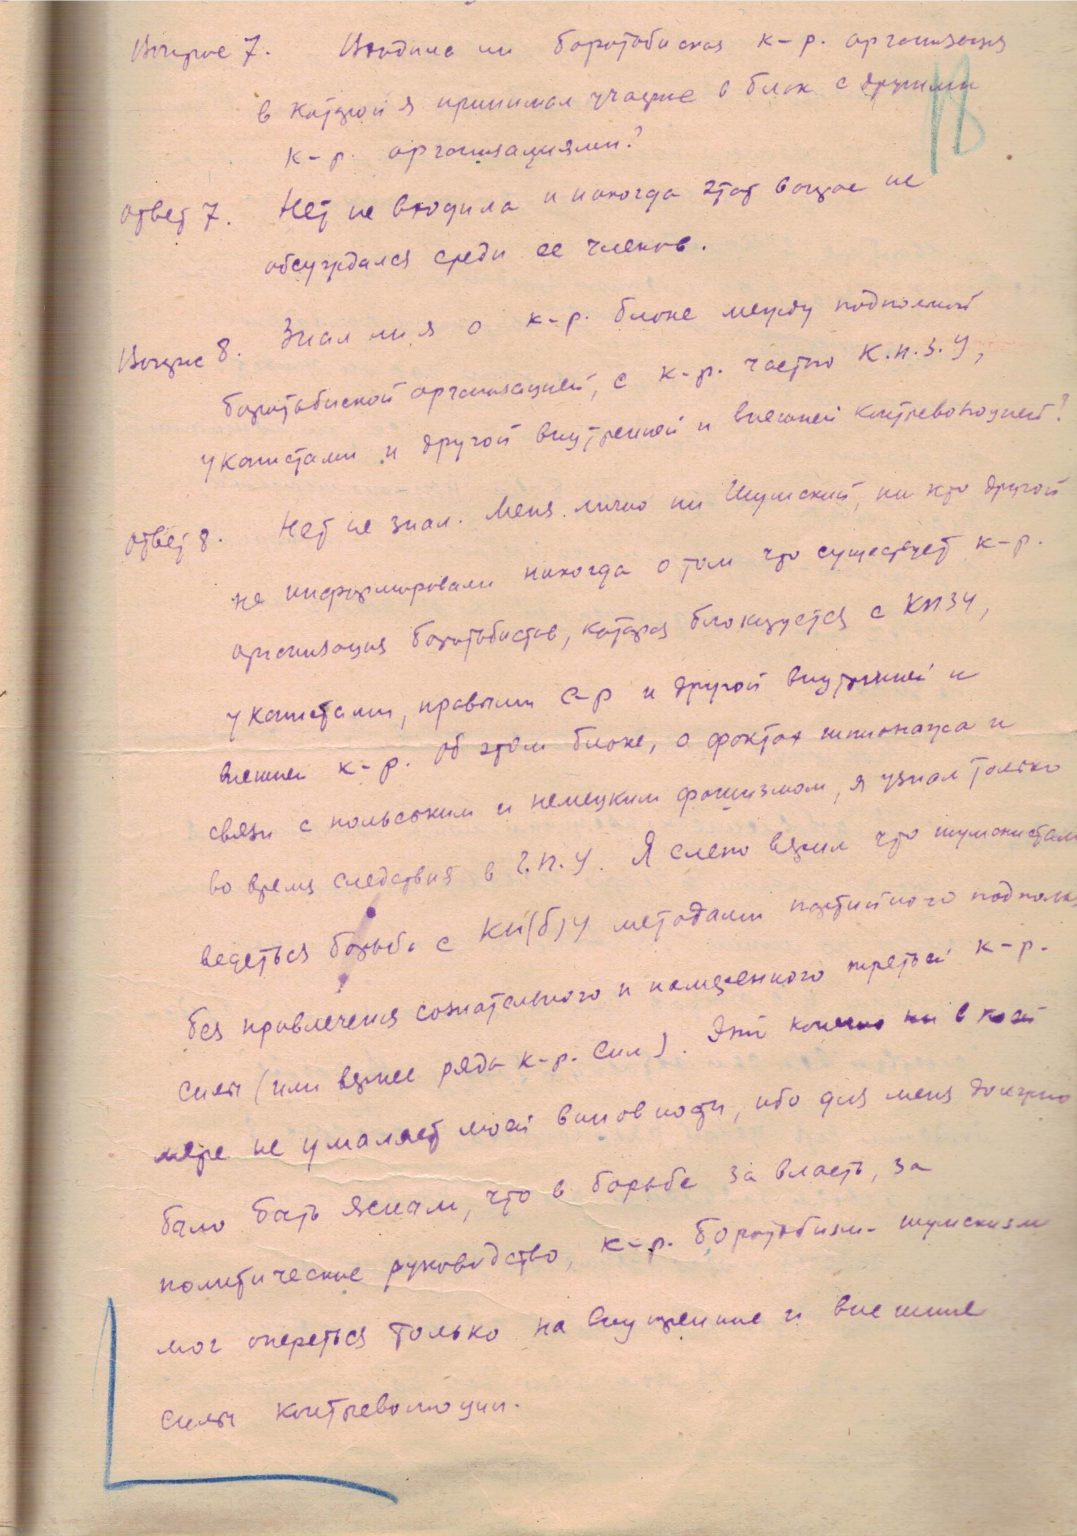 Вопрос 7. Входила ли боротбиская к-р. организация
в которой я принимал участие в блок с другими
к-р. организациями?
Ответ 7. Нет не входила и никогда этот вопрос не
обсуждался среди ее членов.
Вопрос 8. Знал ли я о к-р. блоке между подпольной
боротбиской организацией, с к-р. частью К.П.З.У,
укапистами и другой внутренней и внешней контрреволюцией?
Ответ 8. Нет не знал. Меня лично ни Шумский, ни кто другой
не информировали никогда о том что существует к-р.
организация боротбистов, которая блокируется с КПЗУ,
укапистами, правыми с-р и другой внутренней и
внешней к-р. Об этом блоке, о фактах шпионажа и
связи с польським и немецким фашизмом, я узнал только
во время следствия в Г.П.У. Я слепо верил что шумскистами
ведеться борьба с КП(б)У методами партийного подполья
без привлечения сознательного и намеренного третьей к-р.
силы (или вернее ряда к-р. сил). Это конечно ни в коей
мере не умаляет моей виновности, ибо для меня должно
было быть ясным, что в борьбе за власть, за
политическое руководство, к-р. боротьбизм-шумскизм
мог опереться только на внутренние и внешние
силы контрреволюции.